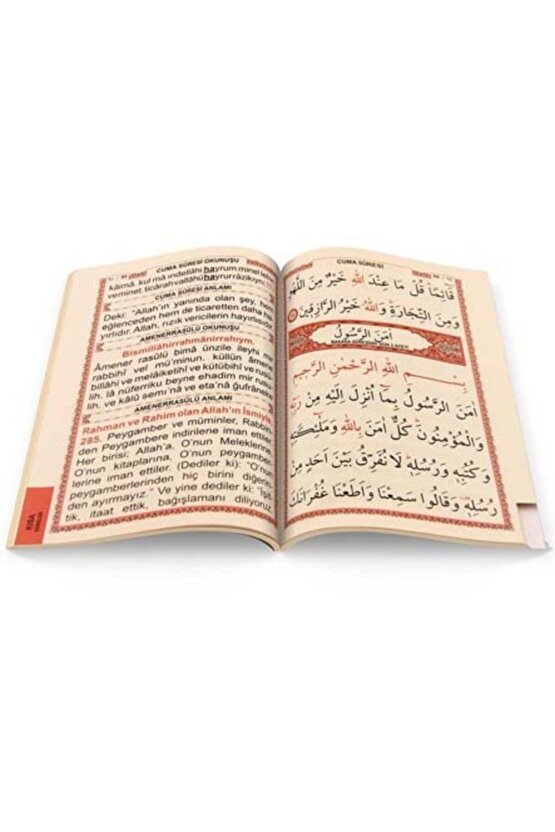 CUMA SÛRESİ OKUNUŞU
kâimâ. kul mâ indellâhi hayrum minel lehvi
veminet ticârah vallâhü hayrurrâzikıyn.
CUMA SÛRESİ ANLAMI
Deki: “Allah’ın yanında olan şey, hem
eğlenceden hem de ticaretten daha ha-
yırlıdır. Allah, rızık vericilerin hayırlısıdır.
AMENERRASÛLÜ OKUNUŞU
Bismillâhirrahmânirrahıym.
Âmener rasûlü bimâ ünzile ileyhi mir
rabbihî vel mü’minun. küllün âmene
billâhi ve melâiketihî ve kütübihî ve rusü-
lih. lâ nüferriku beyne ehadim mir rusü-
lih. ve kâlû semı’nâ ve eta’nâ ğufrânek
AMENERRASÛLÜ ANLAMI
Rahman ve Rahim olan Allah’ın İsmiyle
285. Peygamber ve müminler, Rabbin-
den Peygambere indirilene iman ettiler.
Her birisi; Allah’a, O’nun Meleklerine,
O’nun kitaplarına, O’nun peygamber-
lerine iman ettiler. (Dediler ki): “O’nun
peygamberlerinden hiç birini diğerin-
den ayırmayız.” Ve yine dediler ki: “İşit-
tik, itaat ettik, bağışlamanı diliyoruz.
KISA
SÛRELER
CUMA SÛRESİ
قَائِمًا قُلْ مَا عِنْدَ اللّٰهِ خَيْرٌ مِنَ اللَّهْوِ
وَمِنَ التِّجَارَةِ وَاللّٰهُ خَيْرُ الرَّازِقِينَ
اٰمَنَ الرَّسُولُ
بِسْمِ اللّٰهِ الرَّحْمٰنِ الرَّحِيمِ
اٰمَنَ الرَّسُولُ بِمَا اُنْزِلَ اِلَيْهِ مِنْ رَبِّهِ
وَالْمُؤْمِنُونَ كُلٌّ اٰمَنَ بِاللّٰهِ وَمَلٰئِكَتِهِ
وَكُتُبِهِ وَرُسُلِهِ لَا نُفَرِّقُ بَيْنَ اَحَدٍ مِنْ
رُسُلِهِ وَقَالُوا سَمِعْنَا وَاَطَعْنَا غُفْرَانَكَ